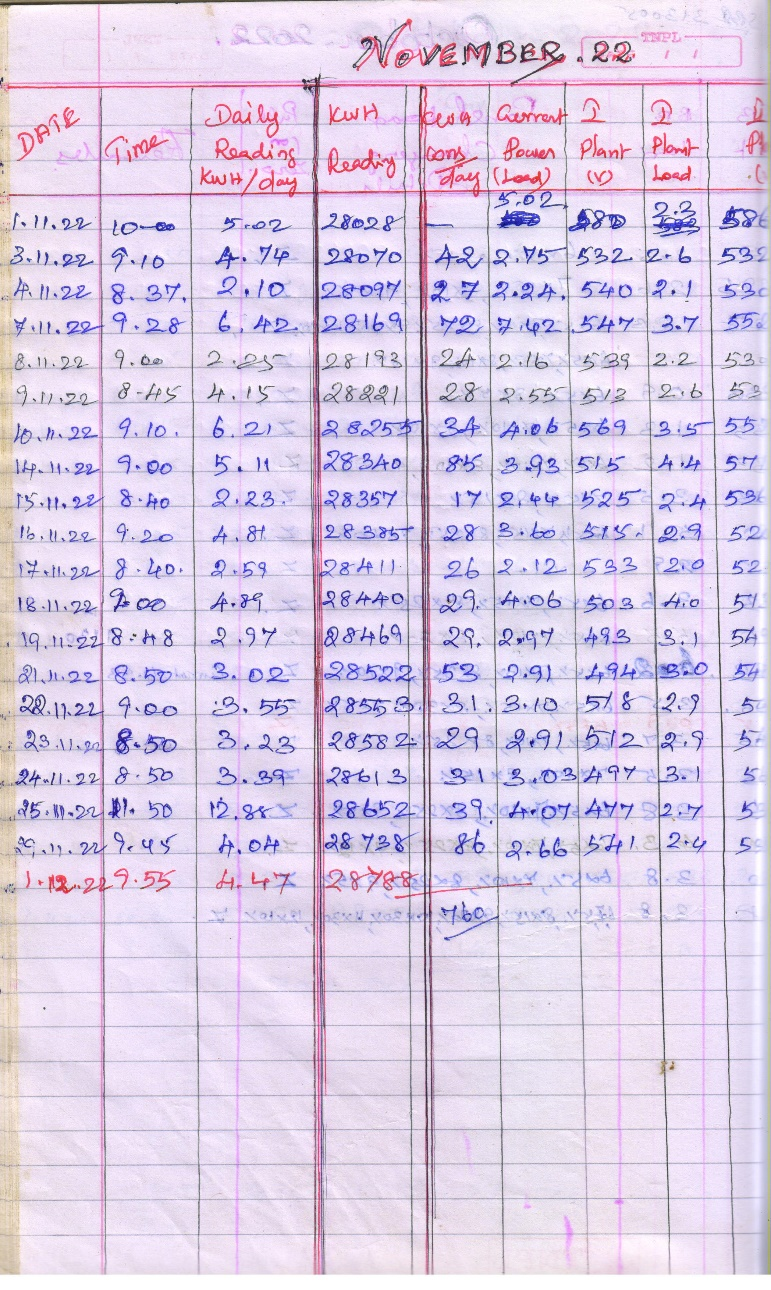 NOVEMBER. 22
TNPL
DATE Time Daily Reading KWH/day KWH Reading KWH cons/day Current Power (Load) I Plant (V) I Plant Load
1.11.22 10-00 5.02 28028 — 5.02 580 2.3 586
3.11.22 9.10 4.74 28070 42 2.75 532 2.6 532
4.11.22 8.37. 2.10 28097 27 2.24. 540 2.1 530
7.11.22 9.28 6.42 28169 72 7.42 547 3.7 552
8.11.22 9.00 2.25 28193 24 2.16 539 2.2 53
9.11.22 8-45 4.15 28221 28 2.55 513 2.6 53
10.11.22 9.10. 6.21 28255 34 4.06 569 3.5 55
14.11.22 9.00 5.11 28340 85 3.93 515 4.4 57
15.11.22 8.40 2.23. 28357 17 2.44 525 2.4 536
16.11.22 9.20 4.81 28385 28 3.60 515. 2.9 52
17.11.22 8.40. 2.59 28411 26 2.12 533 2.0 52
18.11.22 9.00 4.89 28440 29. 4.06 503 4.0 51
19.11.22 8.48 2.97 28469 29. 2.97 493 3.1 54
21.11.22 8.50 3.02 28522 53 2.91 494 3.0 54
22.11.22 9.00 3.55 28553. 31. 3.10 518 2.9 5
23.11.22 8.50 3.23 28582 29 2.91 512 2.9 5
24.11.22 8.50 3.39 28613 31 3.03 497 3.1 5
25.11.22 11.50 12.88 28652 39. 4.07 477 2.7 5
29.11.22 9.45 4.04 28738 86 2.66 541 2.4 5
1.12.22 9.55 4.47 28788
760